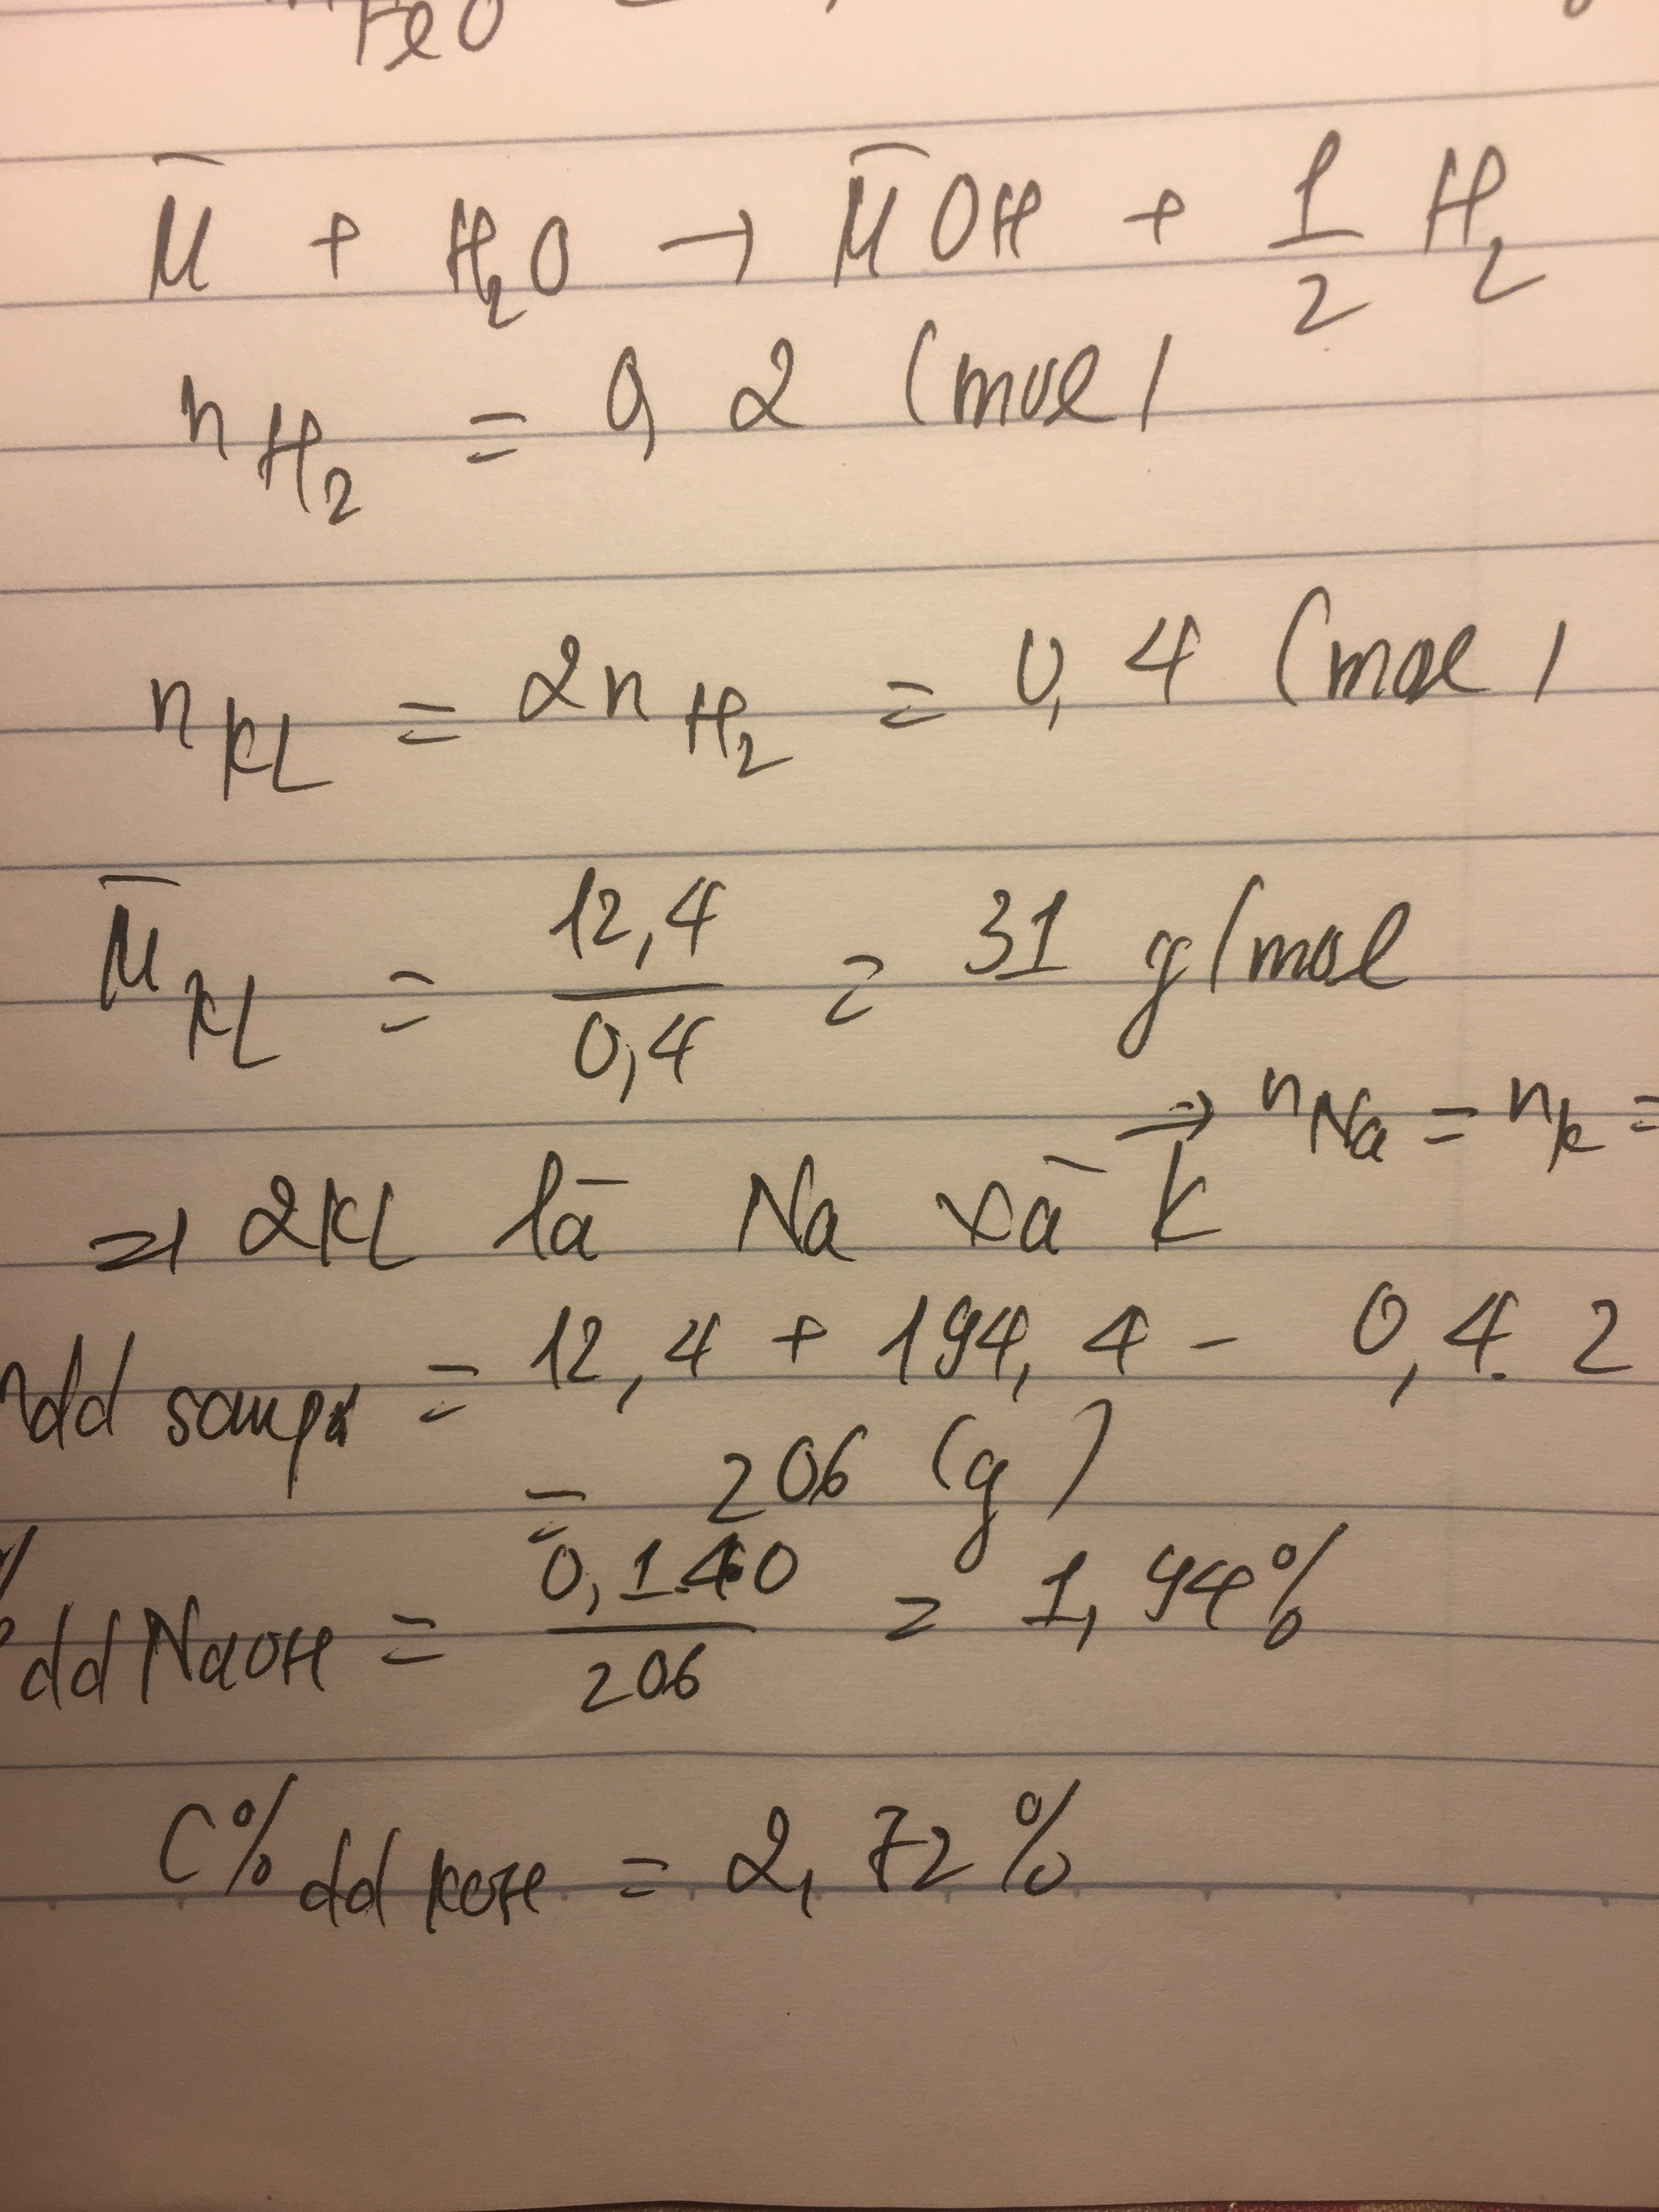 FeO
M̄ + H₂O → M̄OH + 1/2 H₂
nH₂ = 0,2 (mol)
nKL = 2nH₂ = 0,4 (mol)
M̄KL = 12,4/0,4 = 31 g/mol
⇒ nNa = nK =
⇒ 2KL là Na và K
mdd saupứ = 12,4 + 194,4 - 0,4.2
= 206 (g)
% dd NaOH = 0,1.40/206 = 1,94%
C% dd KOH = 2,72%